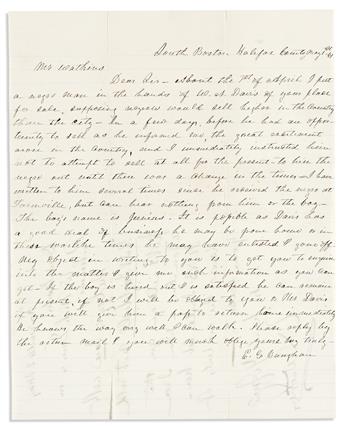 South Boston Halifax County May
Mr Watkins
Dear Sir - About the 1st of April I put
a negro man in the hands of W. A. Davis of your place
for sale, supposing negroes would sell higher in the Country
than the City - In a few days, before he had an oppor-
tunity to sell as he informed me, the great excitement
arose in the Country, and I immediately instructed him
not to attempt to sell at all for the present - to hire the
negro out until there was a change in the times - I have
written to him several times since he received the negro at
Farmville, but can hear nothing from him or the boy -
The boys name is It is possible as Davis has
a good deal of business he may be from home or in
these warlike times he may have enlisted & gone off
My object in writing to you is to get you to enquire
into the matter & give me such information as you can
get - If the boy is hired out & is satisfied he can remain
at present, if not I will be obliged to you or Mr Davis
if you will give him a pass to return home immediately
He knows the way very well & can walk. Please reply by
the return mail & you will much oblige yours very truly -
E. G.